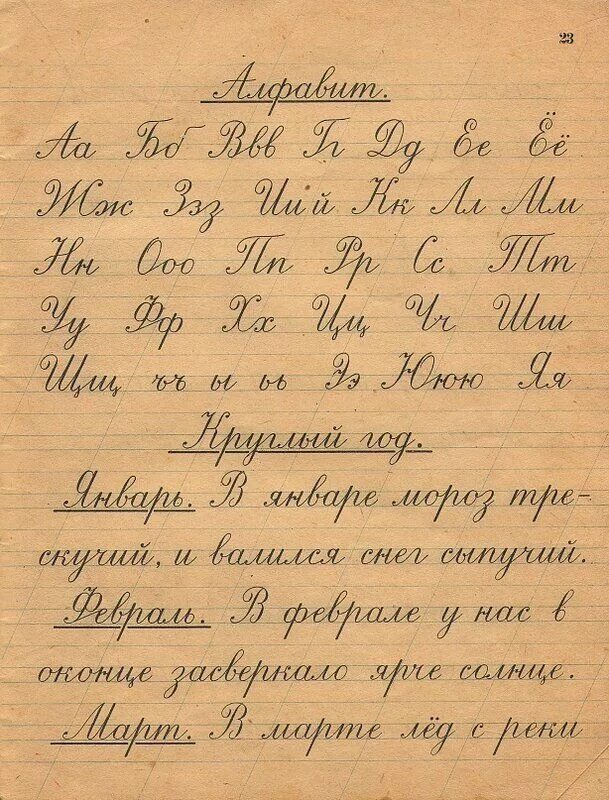 23
Алфавит.
Аа Бб Ввв Гг Дд Ее Ёё
Жж Ззз Иий Кк Лл Мм
Нн Ооо Пп Рр Сс Тт
Уу Фф Хх Цц Чч Шш
Щщ ъъ ы ьь Ээ Ююю Яя
Круглый год.
Январь. В январе мороз тре-
скучий, и валился снег сыпучий.
Февраль. В феврале у нас в
оконце засверкало ярче солнце.
Март. В марте лёд с реки